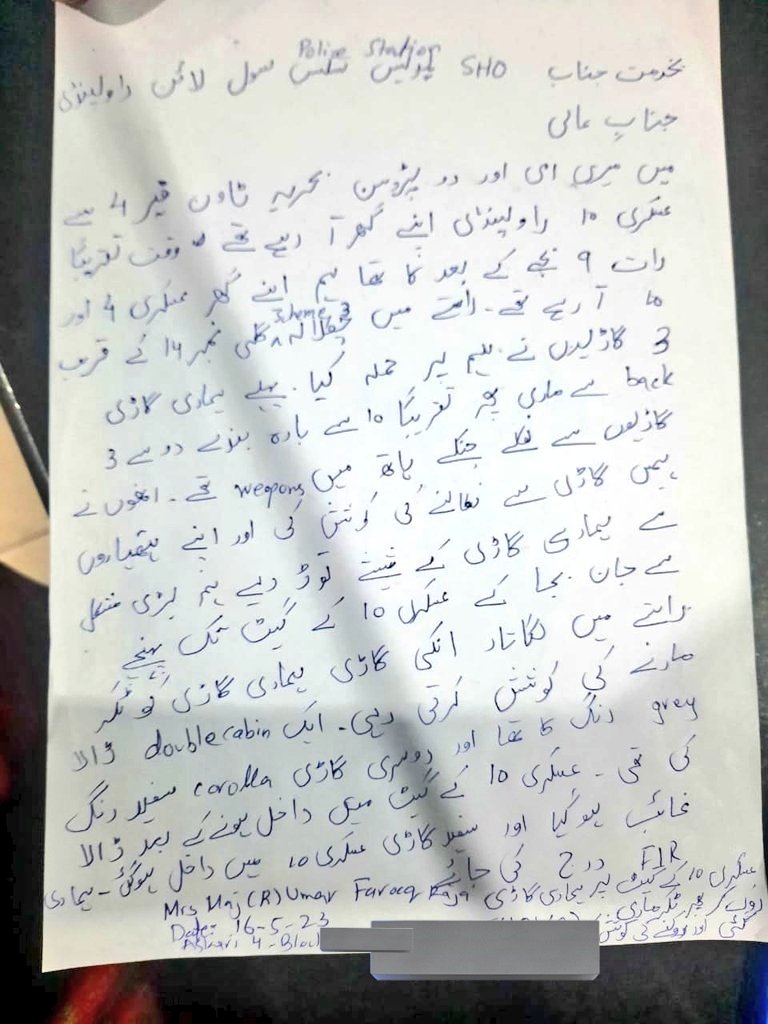 Police Station
بخدمت جناب SHO پولیس سول لائن راولپنڈی
جناب عالی
میں میری امی اور دو بحریہ ٹاون فیز 4 سے
عسکری 10 راولپنڈی اپنے گھر آ رہے تھے وقت تقریباً
رات 9 بجے کے بعد کا تھا ہم اپنے گھر عسکری 4 اور
10 آ رہے تھے۔ راستے میں چکلالہ Scheme 3 گلی نمبر 14 کے قریب
3 گاڑیوں نے ہم پر حملہ کیا۔ پہلے ہماری گاڑی
back سے ماری پھر تقریباً 10 سے بارہ بندے دو سے 3
گاڑیوں سے نکلے جنکے ہاتھ میں weapons تھے۔ انھوں نے
ہمیں گاڑی سے نکالنے کی کوشش کی اور اپنے ہتھیاروں
سے ہماری گاڑی کے شیشے توڑ دیے ہم بڑی مشکل
سے جان بچا کے عسکری 10 کے گیٹ تک پہنچے
راستے میں لگاتار انکی گاڑی ہماری گاڑی کو ٹکر
مارنے کی کوشش کرتی رہی۔ ایک double cabin ڈالا
grey رنگ کا تھا اور دوسری گاڑی corolla سفید رنگ
کی تھی۔ عسکری 10 کے گیٹ میں داخل ہونے کے بعد ڈالا
غائب ہوگیا اور سفید گاڑی عسکری 10 میں داخل ہوگئی۔ ہماری
FIR درج کی جائے
عسکری 10 کے گیٹ پر ہماری گاڑی
Mrs Maj (R) Umar Farooq Raja
پھر ٹکر ماری
Date: 16-5-23
اور روکنے کی کوشش
Askari 4-Bloc